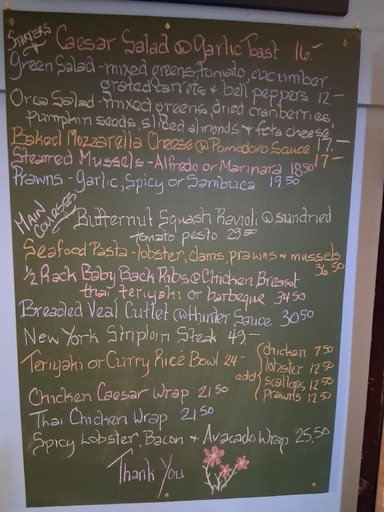 STARTERS
Caesar Salad @ garlic Toast 16.-
Green Salad - mixed greens, tomato, cucumber
grated carrots & bell peppers 12-
Orca Salad - mixed greens, dried cranberries,
pumpkin seeds, sliced almonds & feta cheese
17.-
Baked Mozzarella Cheese @ Pomodoro Sauce
17-
Steamed Mussels - Alfredo or Marinara 18.50
Prawns - Garlic, Spicy or Sambuca 19.50
MAIN
COURSES
Butternut Squash Ravioli @ sundried
tomato pesto 29.50
Seafood Pasta - lobster, clams, prawns & mussels
36.50
1/2 Rack Baby Back Ribs @ Chicken Breast
thai teriyaki or barbeque 34.50
Breaded Veal Cutlet @ Hunter Sauce 30.50
New York Striploin Steak 49-
Teriyaki or Curry Rice Bowl 24-
add
chicken 7.50
lobster 12.50
scallops 12.50
prawns 12.50
Chicken Caesar Wrap 21.50
Thai Chicken Wrap 21.50
Spicy Lobster, Bacon & Avacado Wrap 25.50
Thank You